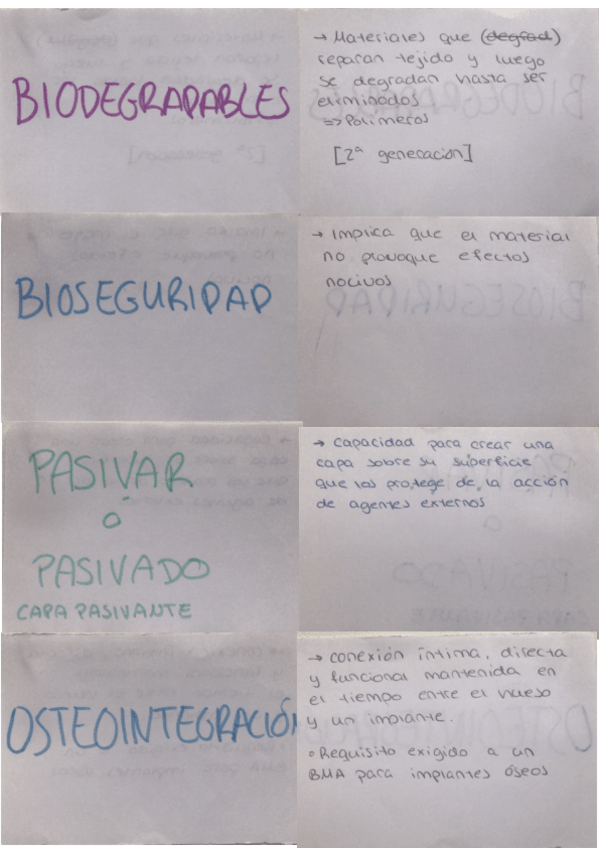 BIODEGRADABLES
→ Materiales que (degrad)
reparan tejido y luego
se degradan hasta ser
eliminados
⇒ Polímeros
[2ª generación]
BIOSEGURIDAD
→ Implica que el material
no provoque efectos
nocivos
PASIVAR
O
PASIVADO
CAPA PASIVANTE
→ capacidad para crear una
capa sobre su superficie
que los protege de la acción
de agentes externos
OSTEOINTEGRACIÓN
→ conexión íntima, directa
y funcional mantenida en
el tiempo entre el hueso
y un implante.
• Requisito exigido a un
BMA para implantes óseos